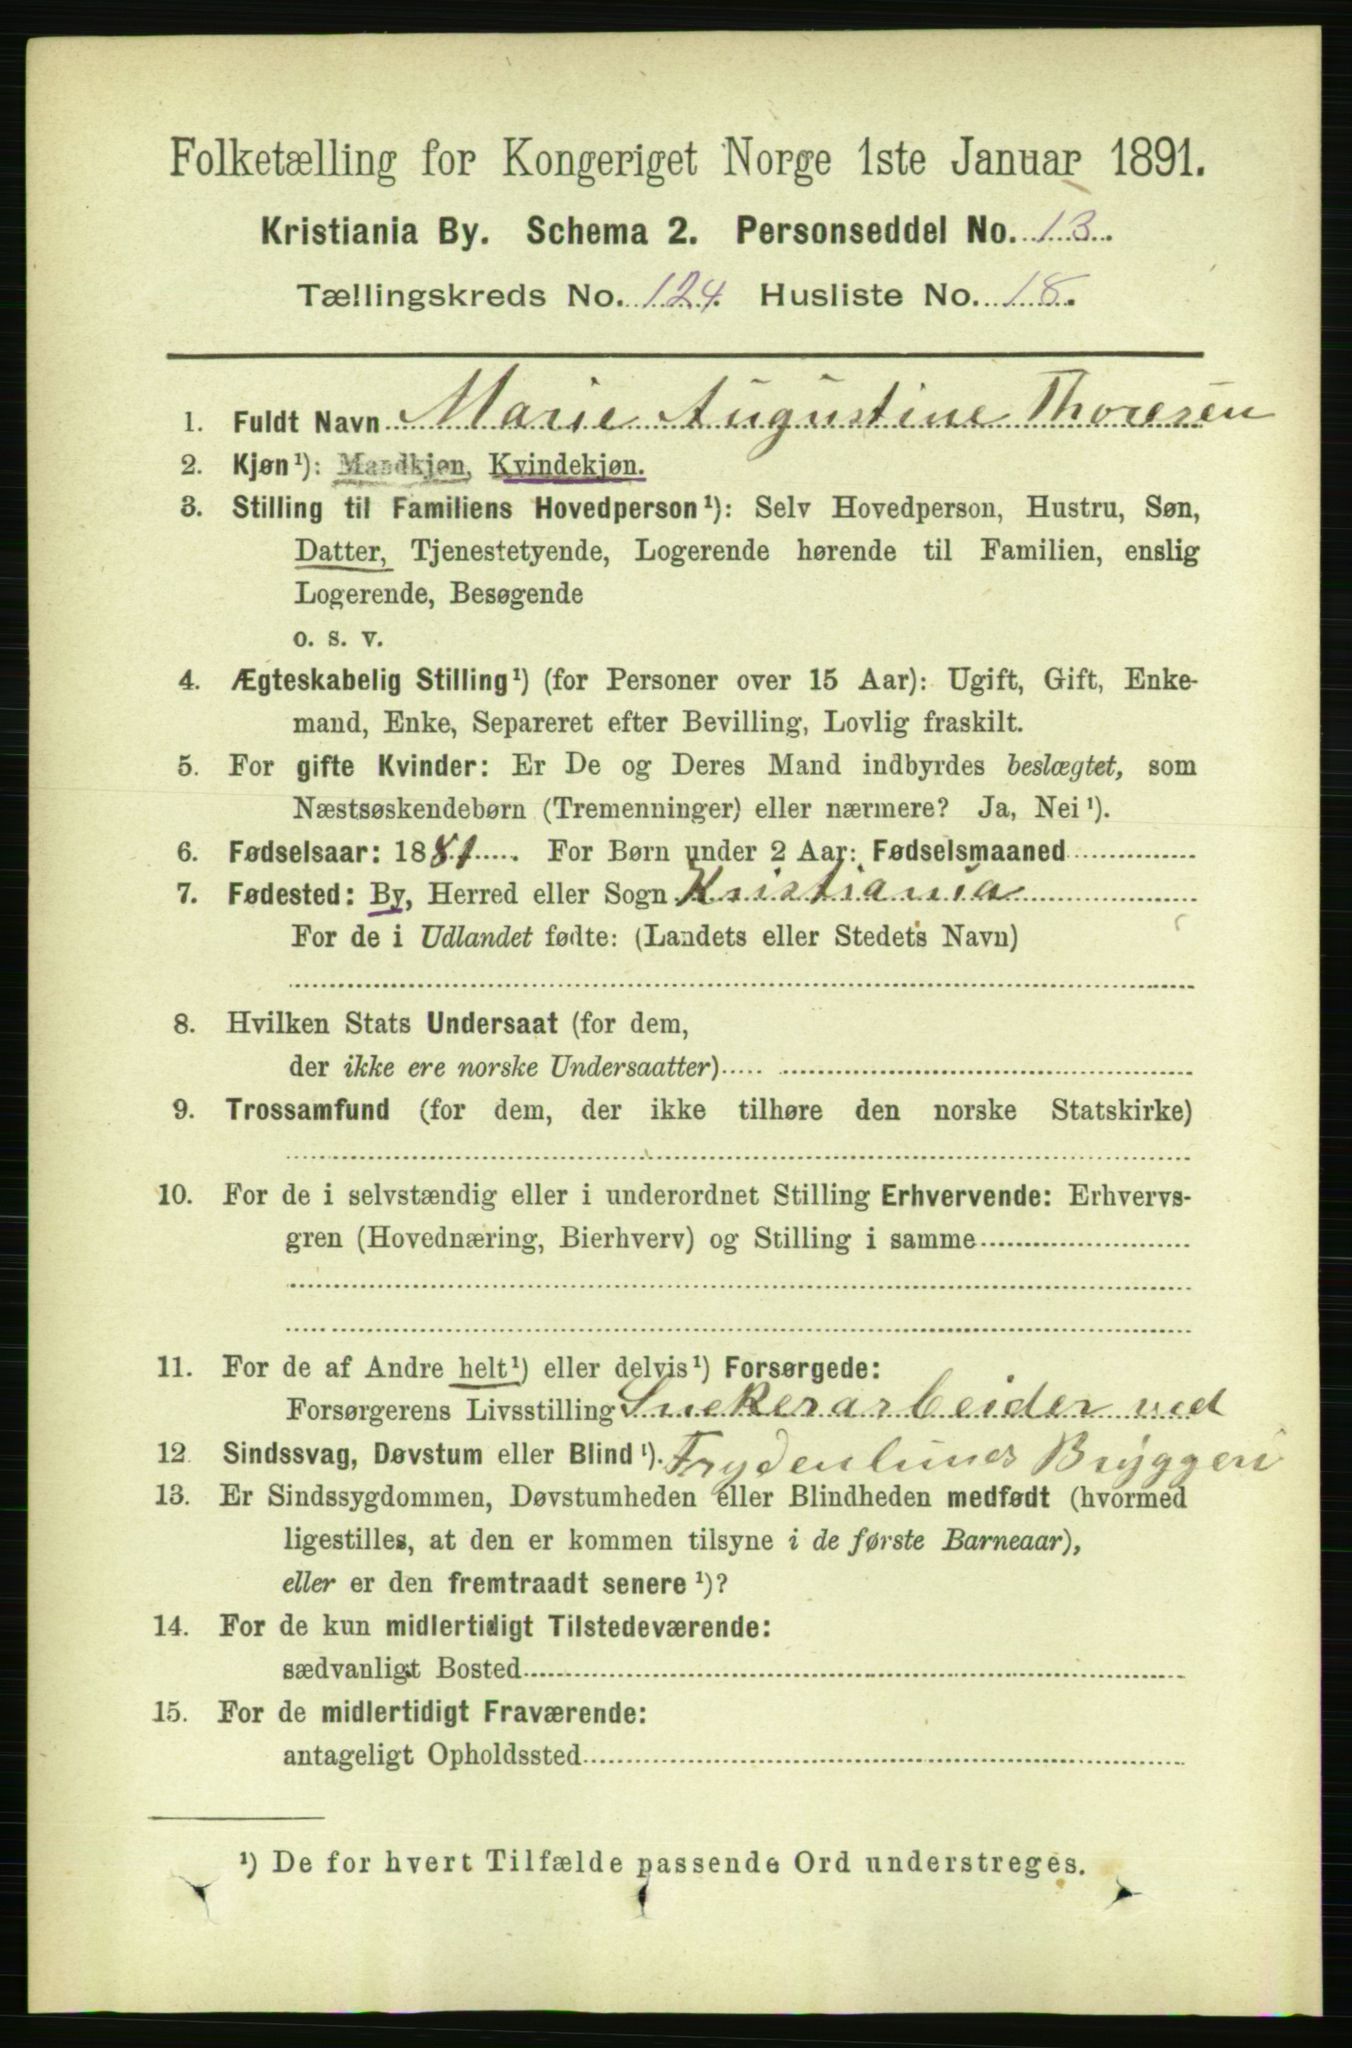 Folketælling for Kongeriget Norge 1ste Januar 1891.
Kristiania By. Schema 2. Personseddel No. 13.
Tællingskreds No. 124. Husliste No. 18.
1. Fuldt Navn Marie Augustine Thoresen
2. Kjøn¹): Mandkjøn, Kvindekjøn.
3. Stilling til Familiens Hovedperson¹): Selv Hovedperson, Hustru, Søn,
Datter, Tjenestetyende, Logerende hørende til Familien, enslig
Logerende, Besøgende
o. s. v.
4. Ægteskabelig Stilling¹) (for Personer over 15 Aar): Ugift, Gift, Enke-
mand, Enke, Separeret efter Bevilling, Lovlig fraskilt.
5. For gifte Kvinder: Er De og Deres Mand indbyrdes beslægtet, som
Næstsøskendebørn (Tremenninger) eller nærmere? Ja, Nei¹).
6. Fødselsaar: 1881. For Børn under 2 Aar: Fødselsmaaned
7. Fødested: By, Herred eller Sogn Kristiania
For de i Udlandet fødte: (Landets eller Stedets Navn)
8. Hvilken Stats Undersaat (for dem,
der ikke ere norske Undersaatter)
9. Trossamfund (for dem, der ikke tilhøre den norske Statskirke)
10. For de i selvstændig eller i underordnet Stilling Erhvervende: Erhvervs-
gren (Hovednæring, Bierhverv) og Stilling i samme
11. For de af Andre helt¹) eller delvis¹) Forsørgede:
Forsørgerens Livsstilling Snekerarbeider ved
12. Sindssvag, Døvstum eller Blind¹). Frydenlunds Bryggeri
13. Er Sindssygdommen, Døvstumheden eller Blindheden medfødt (hvormed
ligestilles, at den er kommen tilsyne i de første Barneaar),
eller er den fremtraadt senere¹)?
14. For de kun midlertidigt Tilstedeværende:
sædvanligt Bosted
15. For de midlertidigt Fraværende:
antageligt Opholdssted
¹) De for hvert Tilfælde passende Ord understreges.